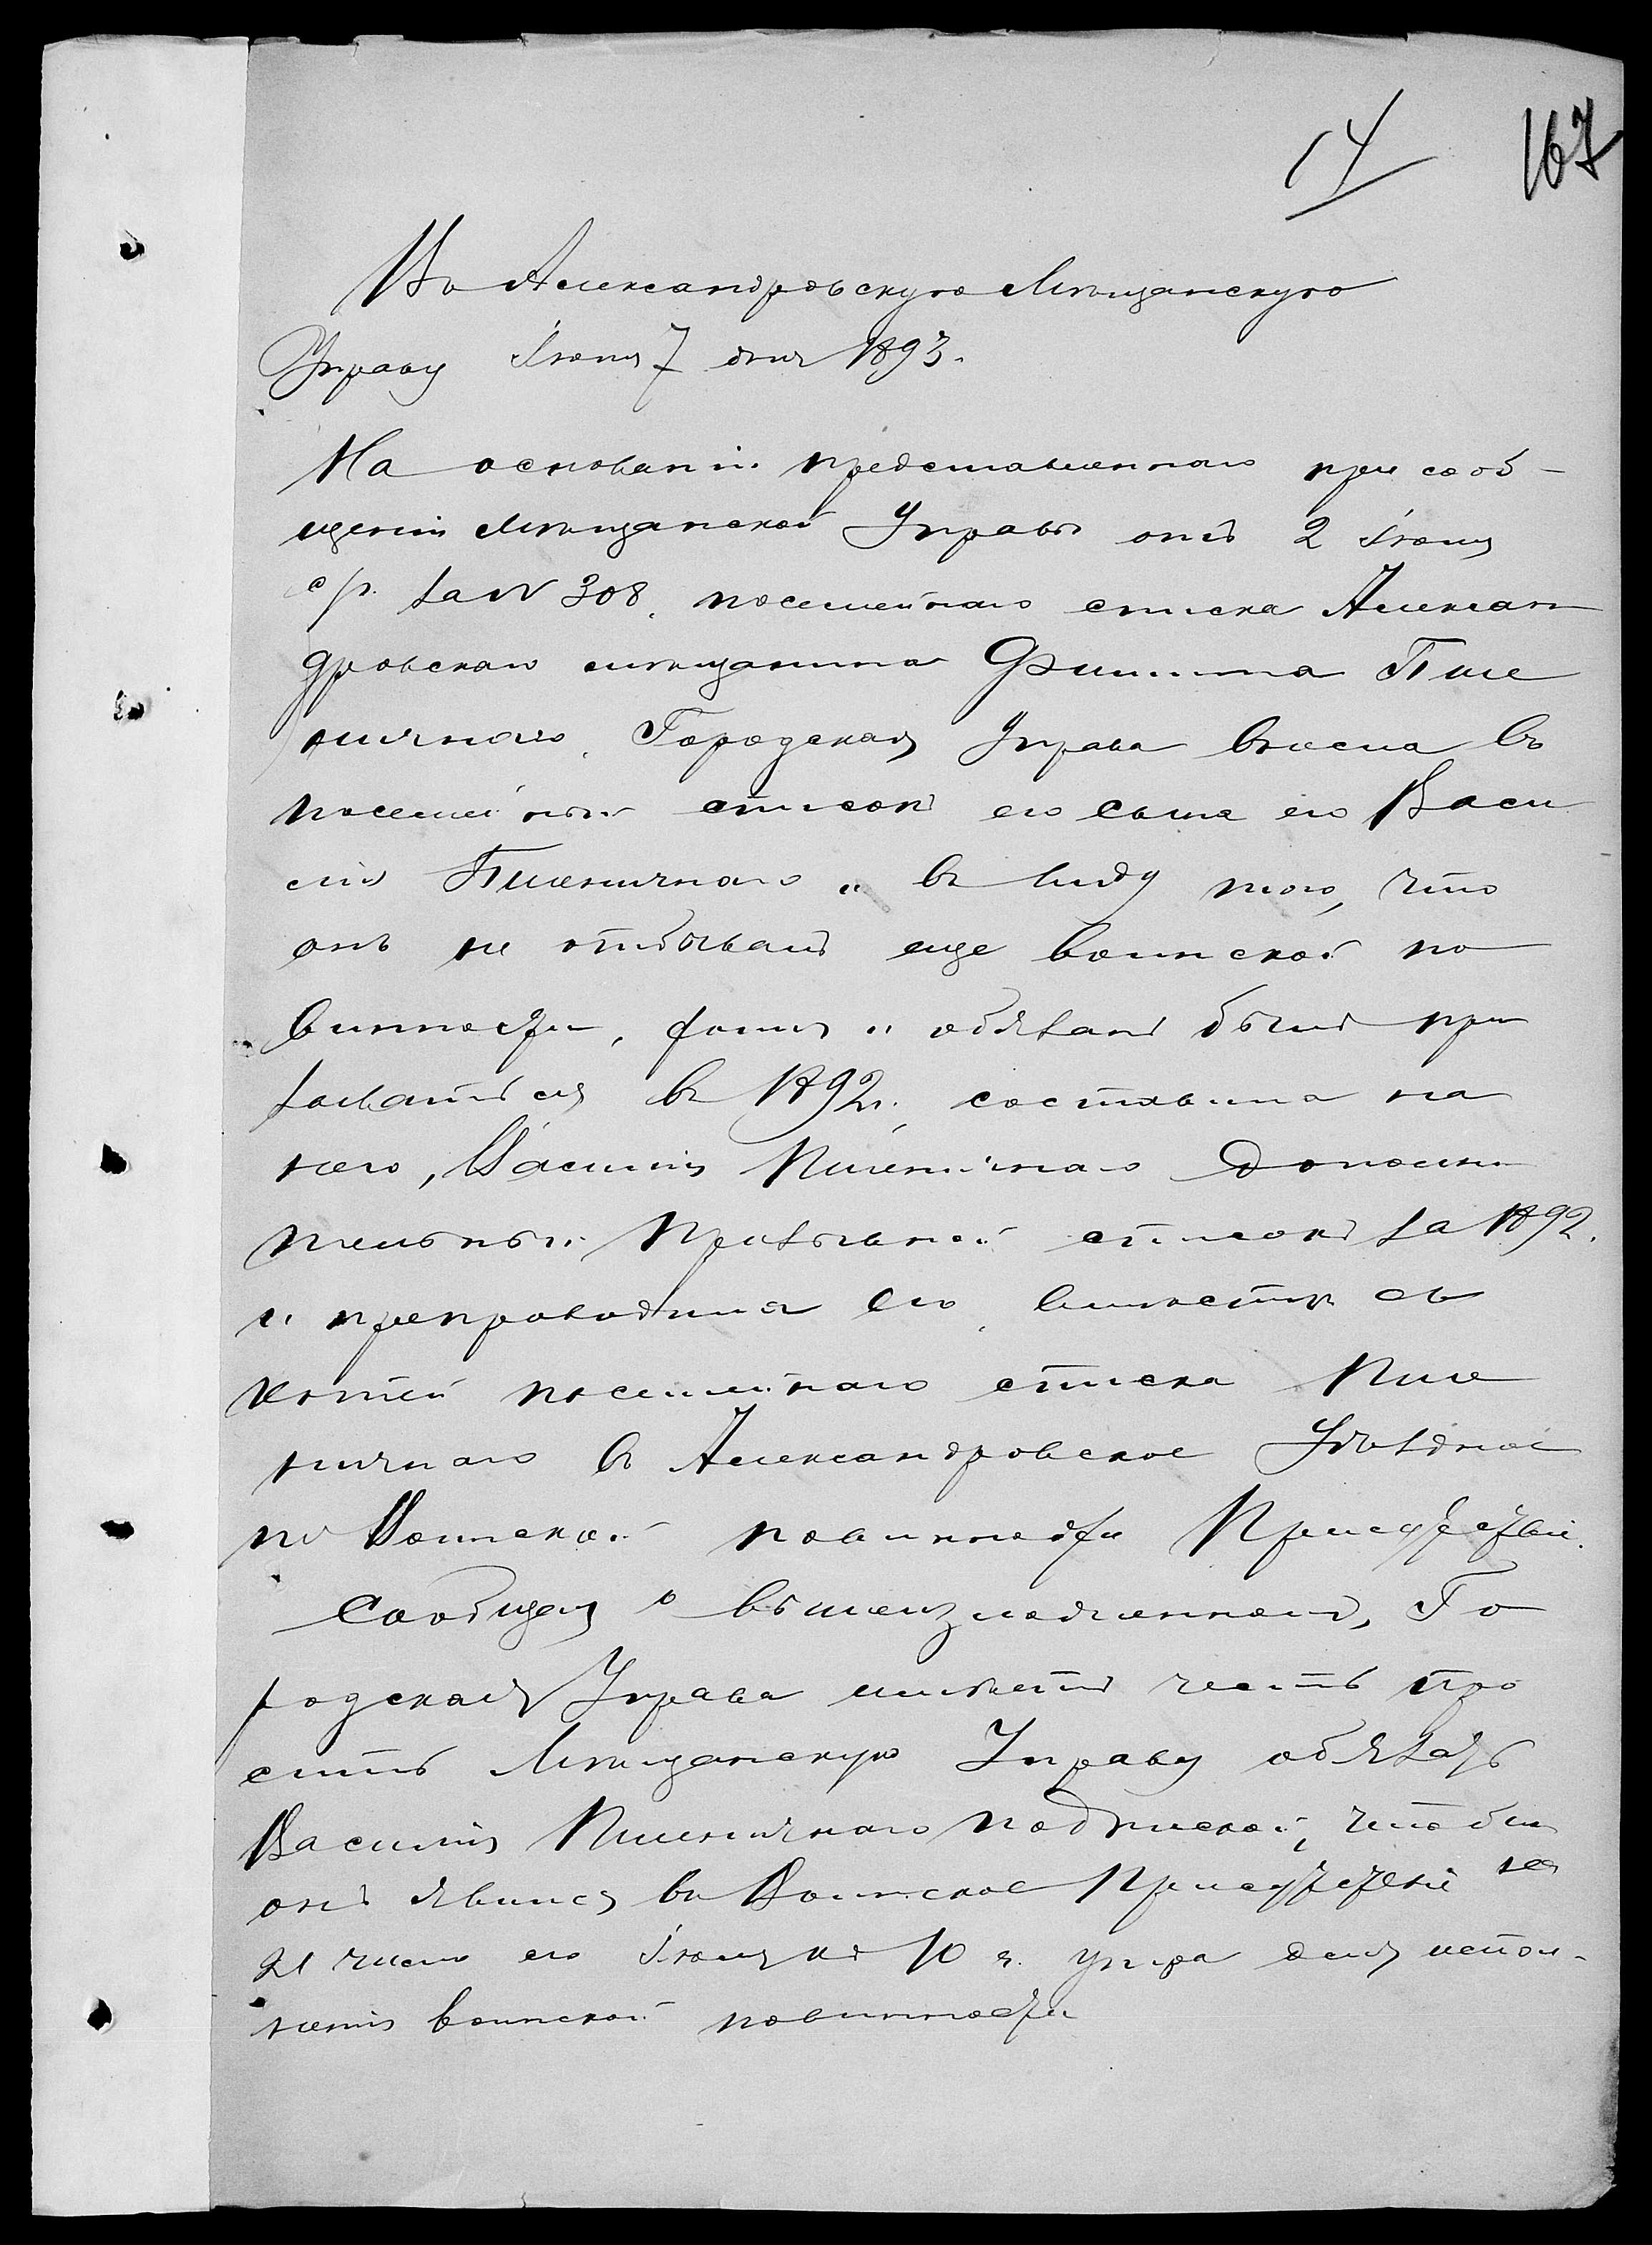 14 167
Въ Александровскую Мѣщанскую
Управу Іюня 7 дня 1893.
На основаніи представленнаго при сооб-
щеніи Мѣщанской Управы отъ 2 Іюня
с/г. за N 308. посемейнаго списка Алексан
дровскаго мѣщанина Филиппа Пше
ничнаго. Городская Управа внесла въ
посемейный списокъ его сына его Васи
лія Пшеничнаго и въ виду того, что
онъ не отбывалъ еще воинской по
винности, хотя и обязанъ былъ при
зываться въ 1892г., составила на
него, Василія Пшеничнаго дополни
тельный Призывной списокъ за 1892.
и препроводила его вмѣстѣ съ
копіей посемейнаго списка Пше
ничнаго въ Александровское Уѣздное
по Воинской повинности Присутствіе.
Сообщая о вышеизложенномъ, Го
родская Управа имѣетъ честь про
сить Мѣщанскую Управу обязать
Василія Пшеничнаго подпиской, чтобы
онъ явился въ Воинское Присутствіе на
21 число его Іюня къ 10 ч. утра для испол-
ненія воинской повинности